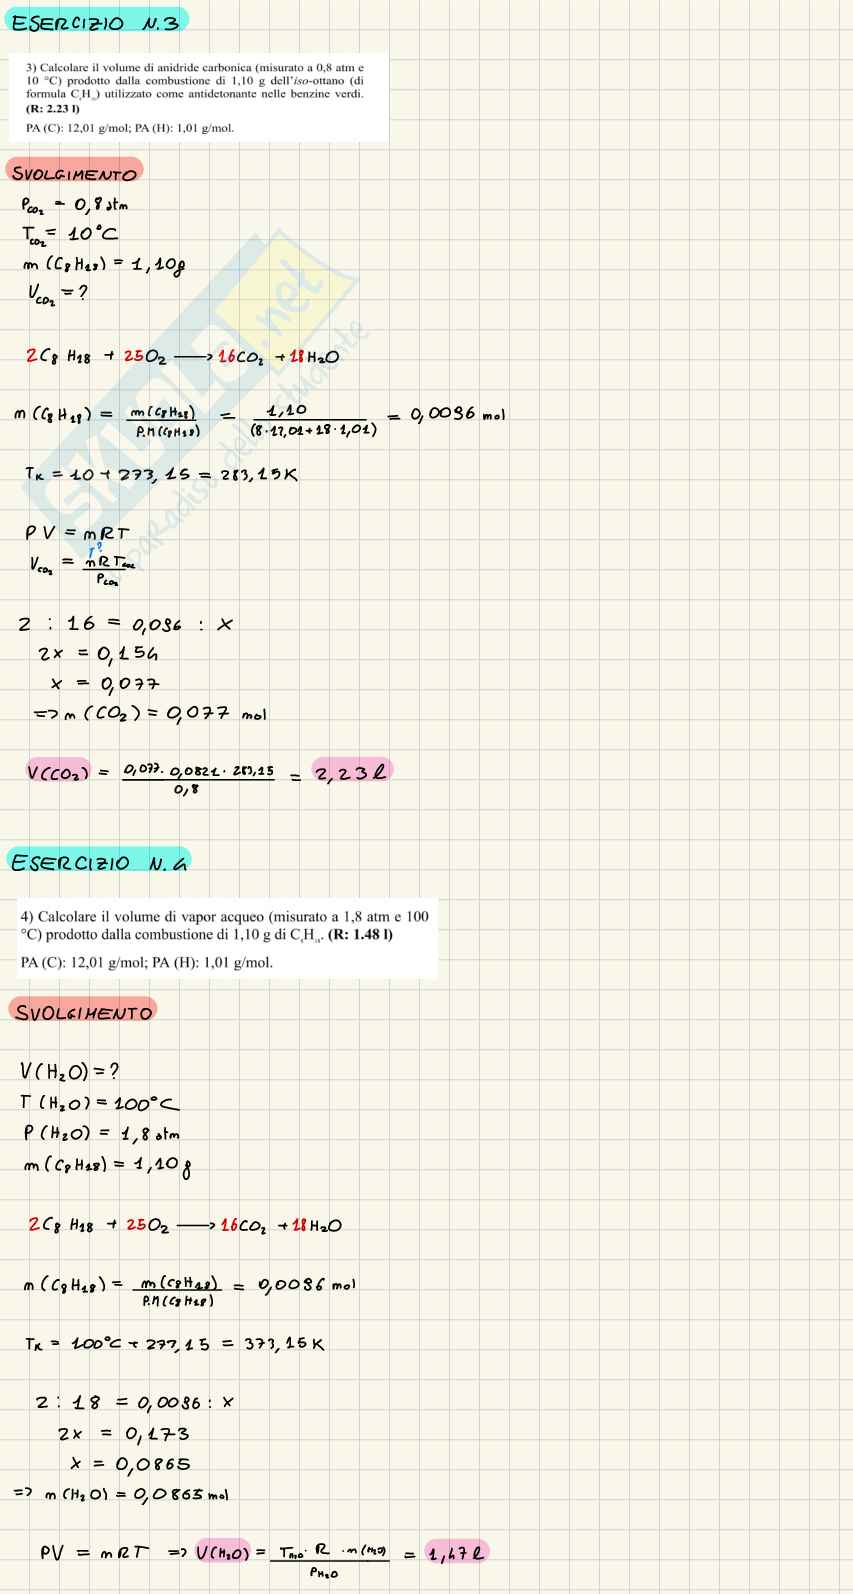 ESERCIZIO N.3
3) Calcolare il volume di anidride carbonica (misurato a 0,8 atm e
10 °C) prodotto dalla combustione di 1,10 g dell'iso-ottano (di
formula C₈H₁₈) utilizzato come antidetonante nelle benzine verdi.
(R: 2.23 l)
PA (C): 12,01 g/mol; PA (H): 1,01 g/mol.
SVOLGIMENTO
P_CO₂ = 0,8 atm
T_CO₂ = 10°C
m (C₈H₁₈) = 1,10g
V_CO₂ = ?
2C₈H18 + 25O₂ → 16CO₂ + 18H₂O
n (C₈H₁₈) = m(C₈H₁₈) / P.M(C₈H₁₈) = 1,10 / (8·12,01+18·1,01) = 0,0096 mol
Tκ = 10 + 273,15 = 283,15K
PV = nRT
r?
V_CO₂ = nRT_CO₂ / P_CO₂
2 : 16 = 0,096 : x
2x = 0,154
x = 0,077
=> n (CO₂) = 0,077 mol
V(CO₂) = 0,077 · 0,0821 · 283,15 / 0,8 = 2,23 l
ESERCIZIO N.4
4) Calcolare il volume di vapor acqueo (misurato a 1,8 atm e 100
°C) prodotto dalla combustione di 1,10 g di C₈H₁₈. (R: 1.48 l)
PA (C): 12,01 g/mol; PA (H): 1,01 g/mol.
SVOLGIMENTO
V(H₂O) = ?
T (H₂O) = 100°C
P (H₂O) = 1,8 atm
m (C₈H₁₈) = 1,10 g
2C₈H18 + 25O₂ → 16CO₂ + 18H₂O
n (C₈H₁₈) = m(C₈H₁₈) / P.M(C₈H₁₈) = 0,0096 mol
Tκ = 100°C + 277,15 = 373,15K
2 : 18 = 0,0096 : x
2x = 0,173
x = 0,0865
=> n (H₂O) = 0,0865 mol
PV = nRT => V(H₂O) = T_H₂O · R · n(H₂O) / P_H₂O = 1,47 l
SKUOLA.net
il paradiso dello studente